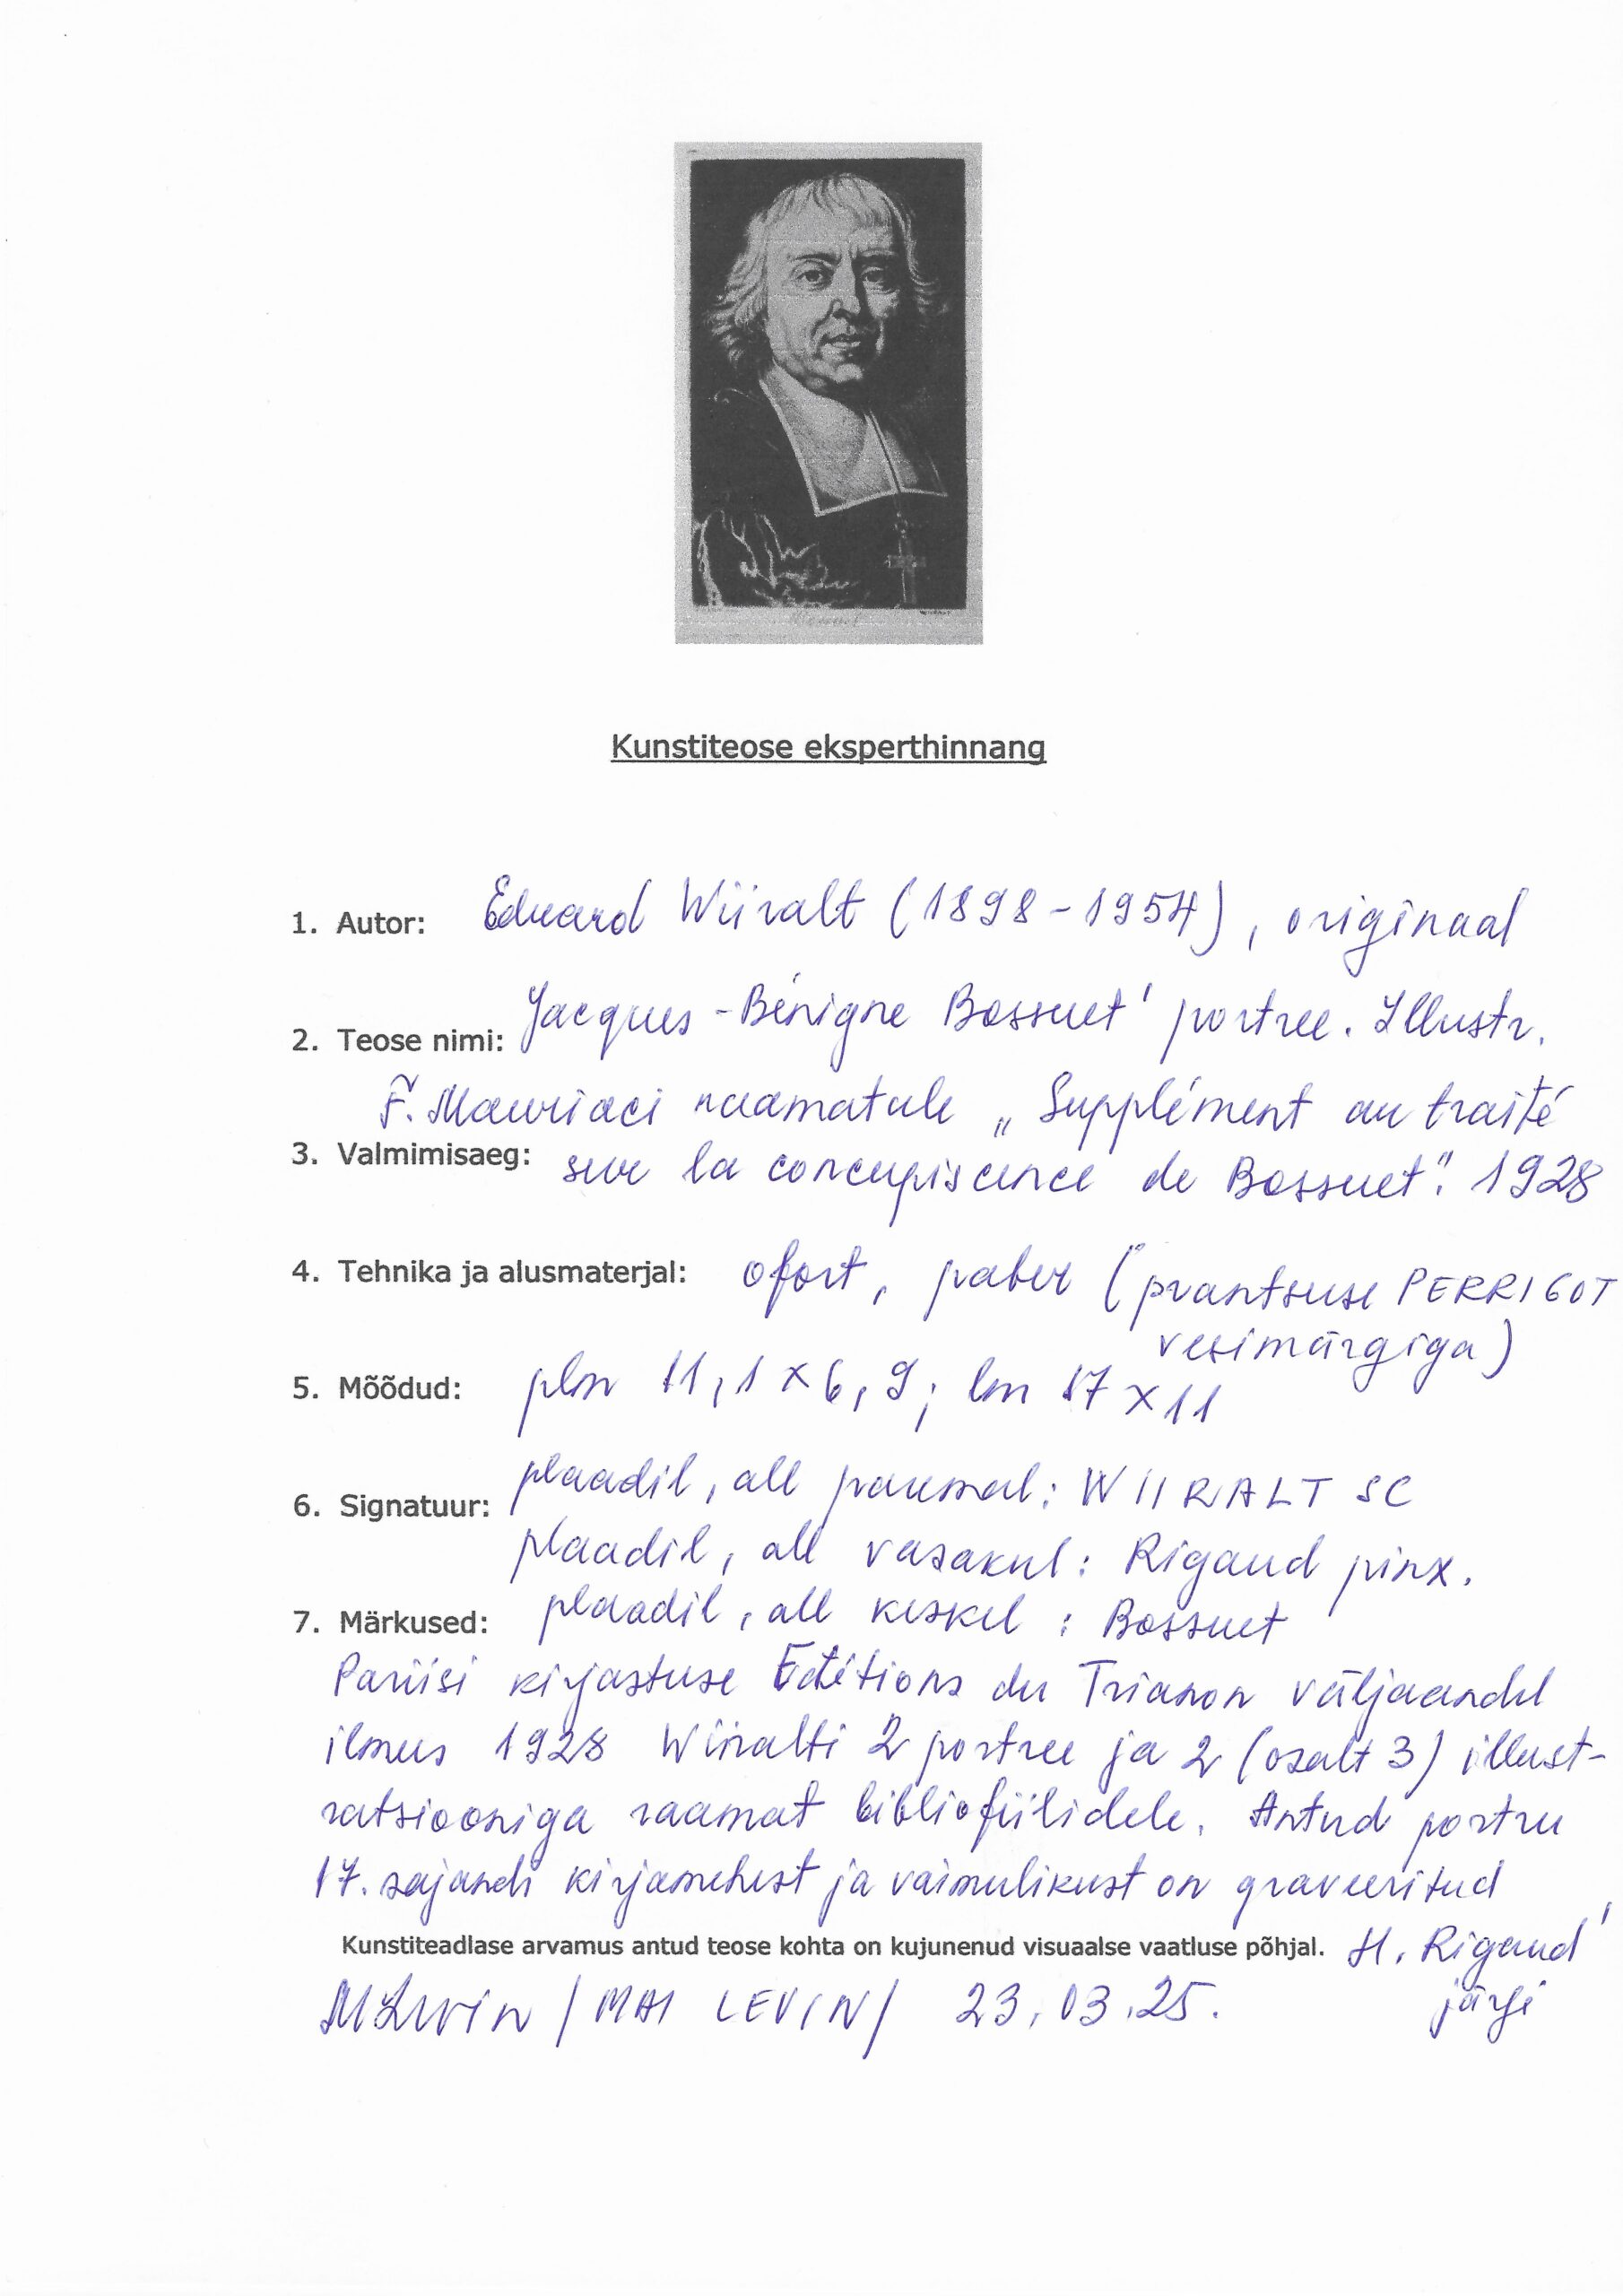 Kunstiteose eksperthinnang
1. Autor: Eduard Wiiralt (1898-1954), originaal
2. Teose nimi: Jacques-Bénigne Bossuet' portree. Illustr.
F. Mauriaci raamatule „Supplément au traité
3. Valmimisaeg: sur la concupiscence de Bossuet". 1928
4. Tehnika ja alusmaterjal: ofort, paber (prantsuse PERRIGOT
vesimärgiga)
5. Mõõdud: plm 11,1 x 6,9; lm 17 x 11
6. Signatuur: plaadil, all paremal: WIIRALT SC
plaadil, all vasakul: Rigaud pinx.
7. Märkused: plaadil, all keskel: Bossuet
Pariisi kirjastuse Éditions du Trianon väljaandel
ilmus 1928 Wiiralti 2 portree ja 2 (osalt 3) illust-
ratsiooniga raamat bibliofiilidele. Antud portree
17. sajandi kirjamehest ja vaimulikust on graveeritud
Kunstiteadlase arvamus antud teose kohta on kujunenud visuaalse vaatluse põhjal. H. Rigaud'
MLevin / MAI LEVIN / 23.03.25. järgi